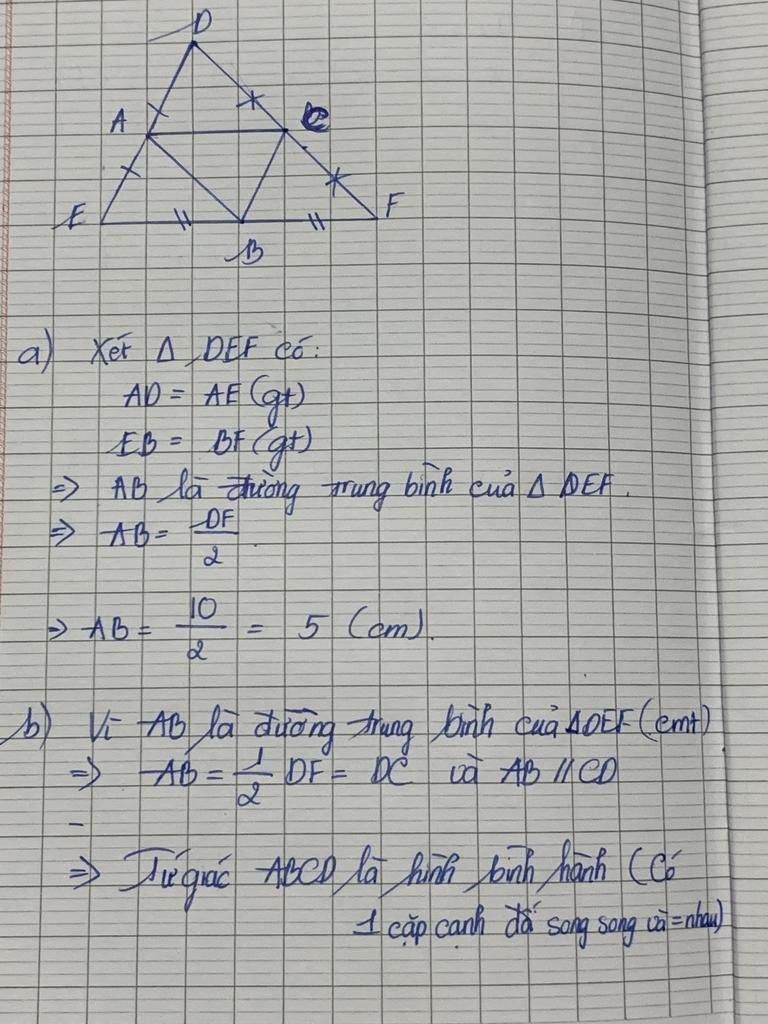 D
A
C
E
F
B
a) Xét Δ DEF có:
AD = AE (gt)
EB = BF (gt)
=> AB là đường trung bình của Δ DEF.
=> AB = DF/2
=> AB = 10/2 = 5 (cm).
b) Vì AB là đường trung bình của ΔDEF (cmt)
=> AB = 1/2 DF = DC và AB // CD
-
=> Tứ giác ABCD là hình bình hành (Có
1 cặp cạnh đối song song và = nhau)